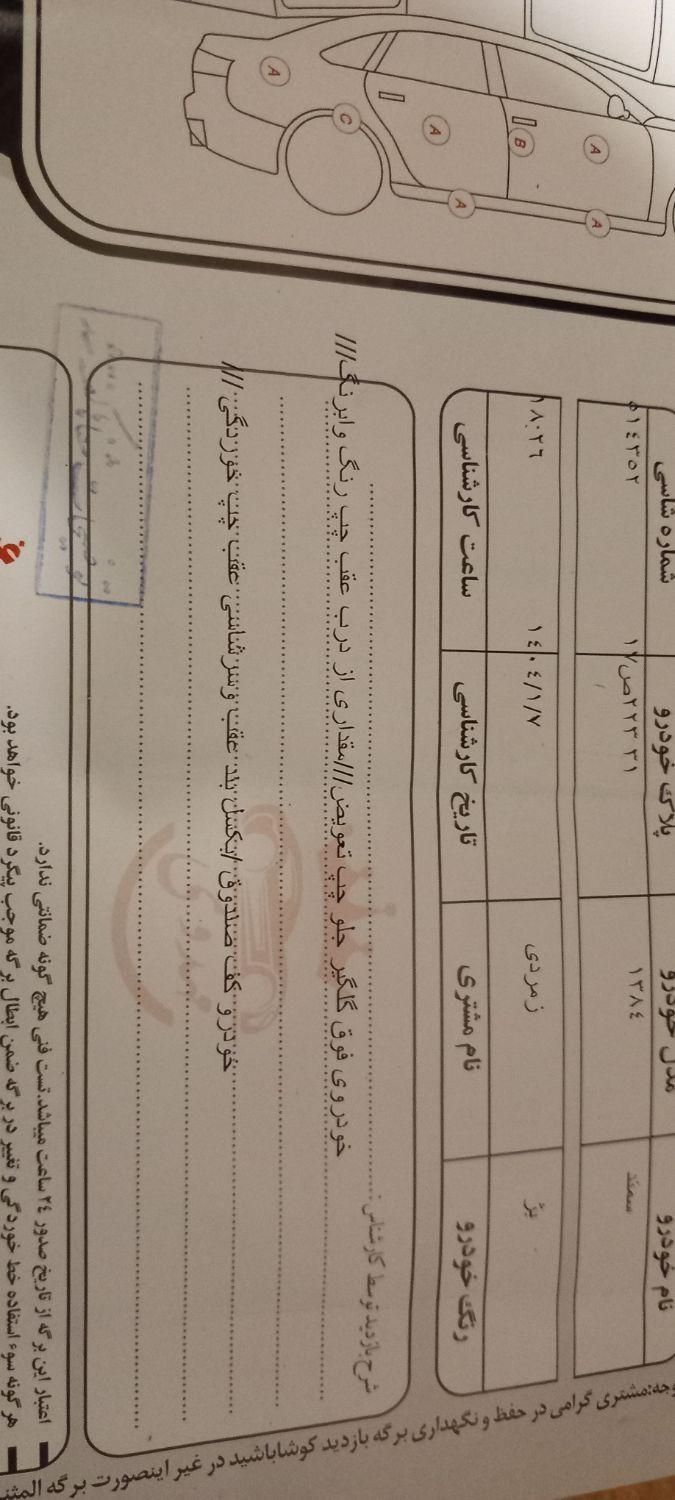 A
C
A
B
A
A
A
شماره شاسی
پلاک خودرو
مدل خودرو
نام خودرو
۵۱٤۳۵۲
۳۱ ۲۲۳ص/۱۷
۱۳۸٤
سمند
ساعت کارشناسی
تاریخ کارشناسی
نام مشتری
رنگ خودرو
۱۸:۲٦
۱٤۰٤/۱/۷
زمردی
بژ
شرح بازدید توسط کارشناس:
خودروی فوق گلگیر جلو چپ تعویض///مقداری از درب عقب چپ رنگ وابرنگ///
خودرو کف صندوق/بکسل بند عقب وسر شاسی عقب چپ خوردگی///
اعتبار این برگه از تاریخ صدور ۲٤ ساعت میباشد.تست فنی هیچ گونه ضمانتی ندارد.
هرگونه سوء استفاده خط خوردگی و تغییر در برگه ضمن ابطال برگه موجب پیگرد قانونی خواهد بود.
وجه:مشتری گرامی در حفظ و نگهداری برگه بازدید کوشاباشید در غیر اینصورت برگه المثنی